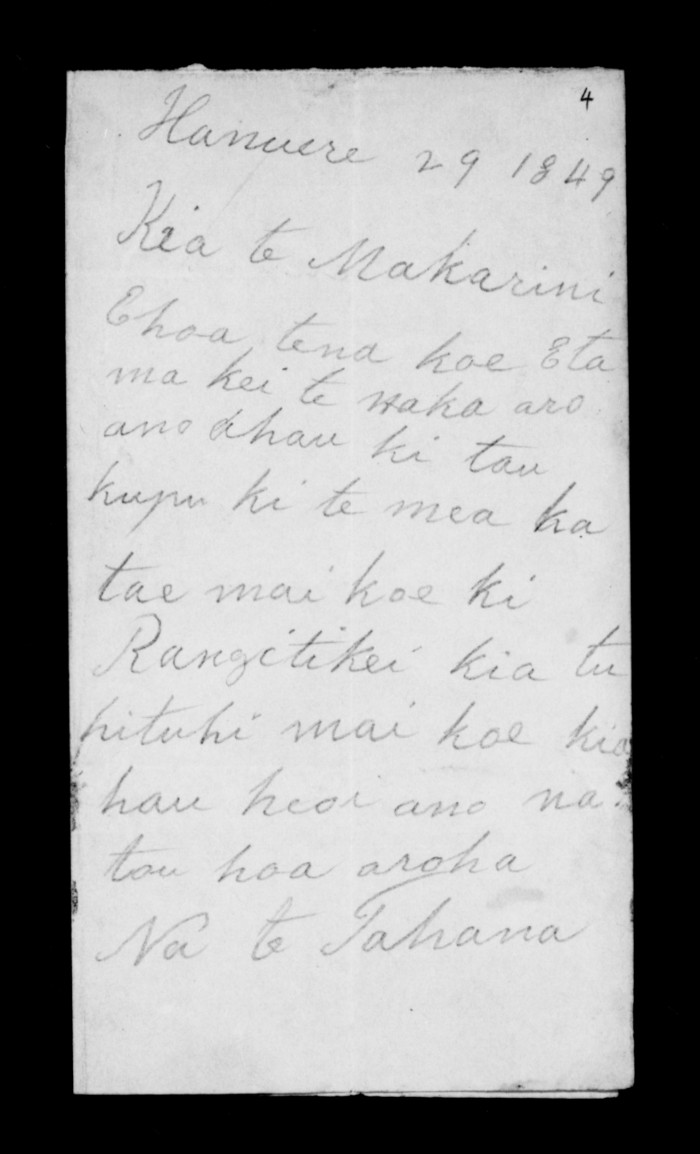 4
Hanuere 29 1849
Kia te Makarini
Ehoa tena koe Eta
ma kei te waka aro
ano ahau ki tau
kupu ki te mea ka
tae mai koe ki
Rangitikei kia tu
hituhi mai koe kia
hau heoi ano na
tou hoa aroha
Na te Tahana